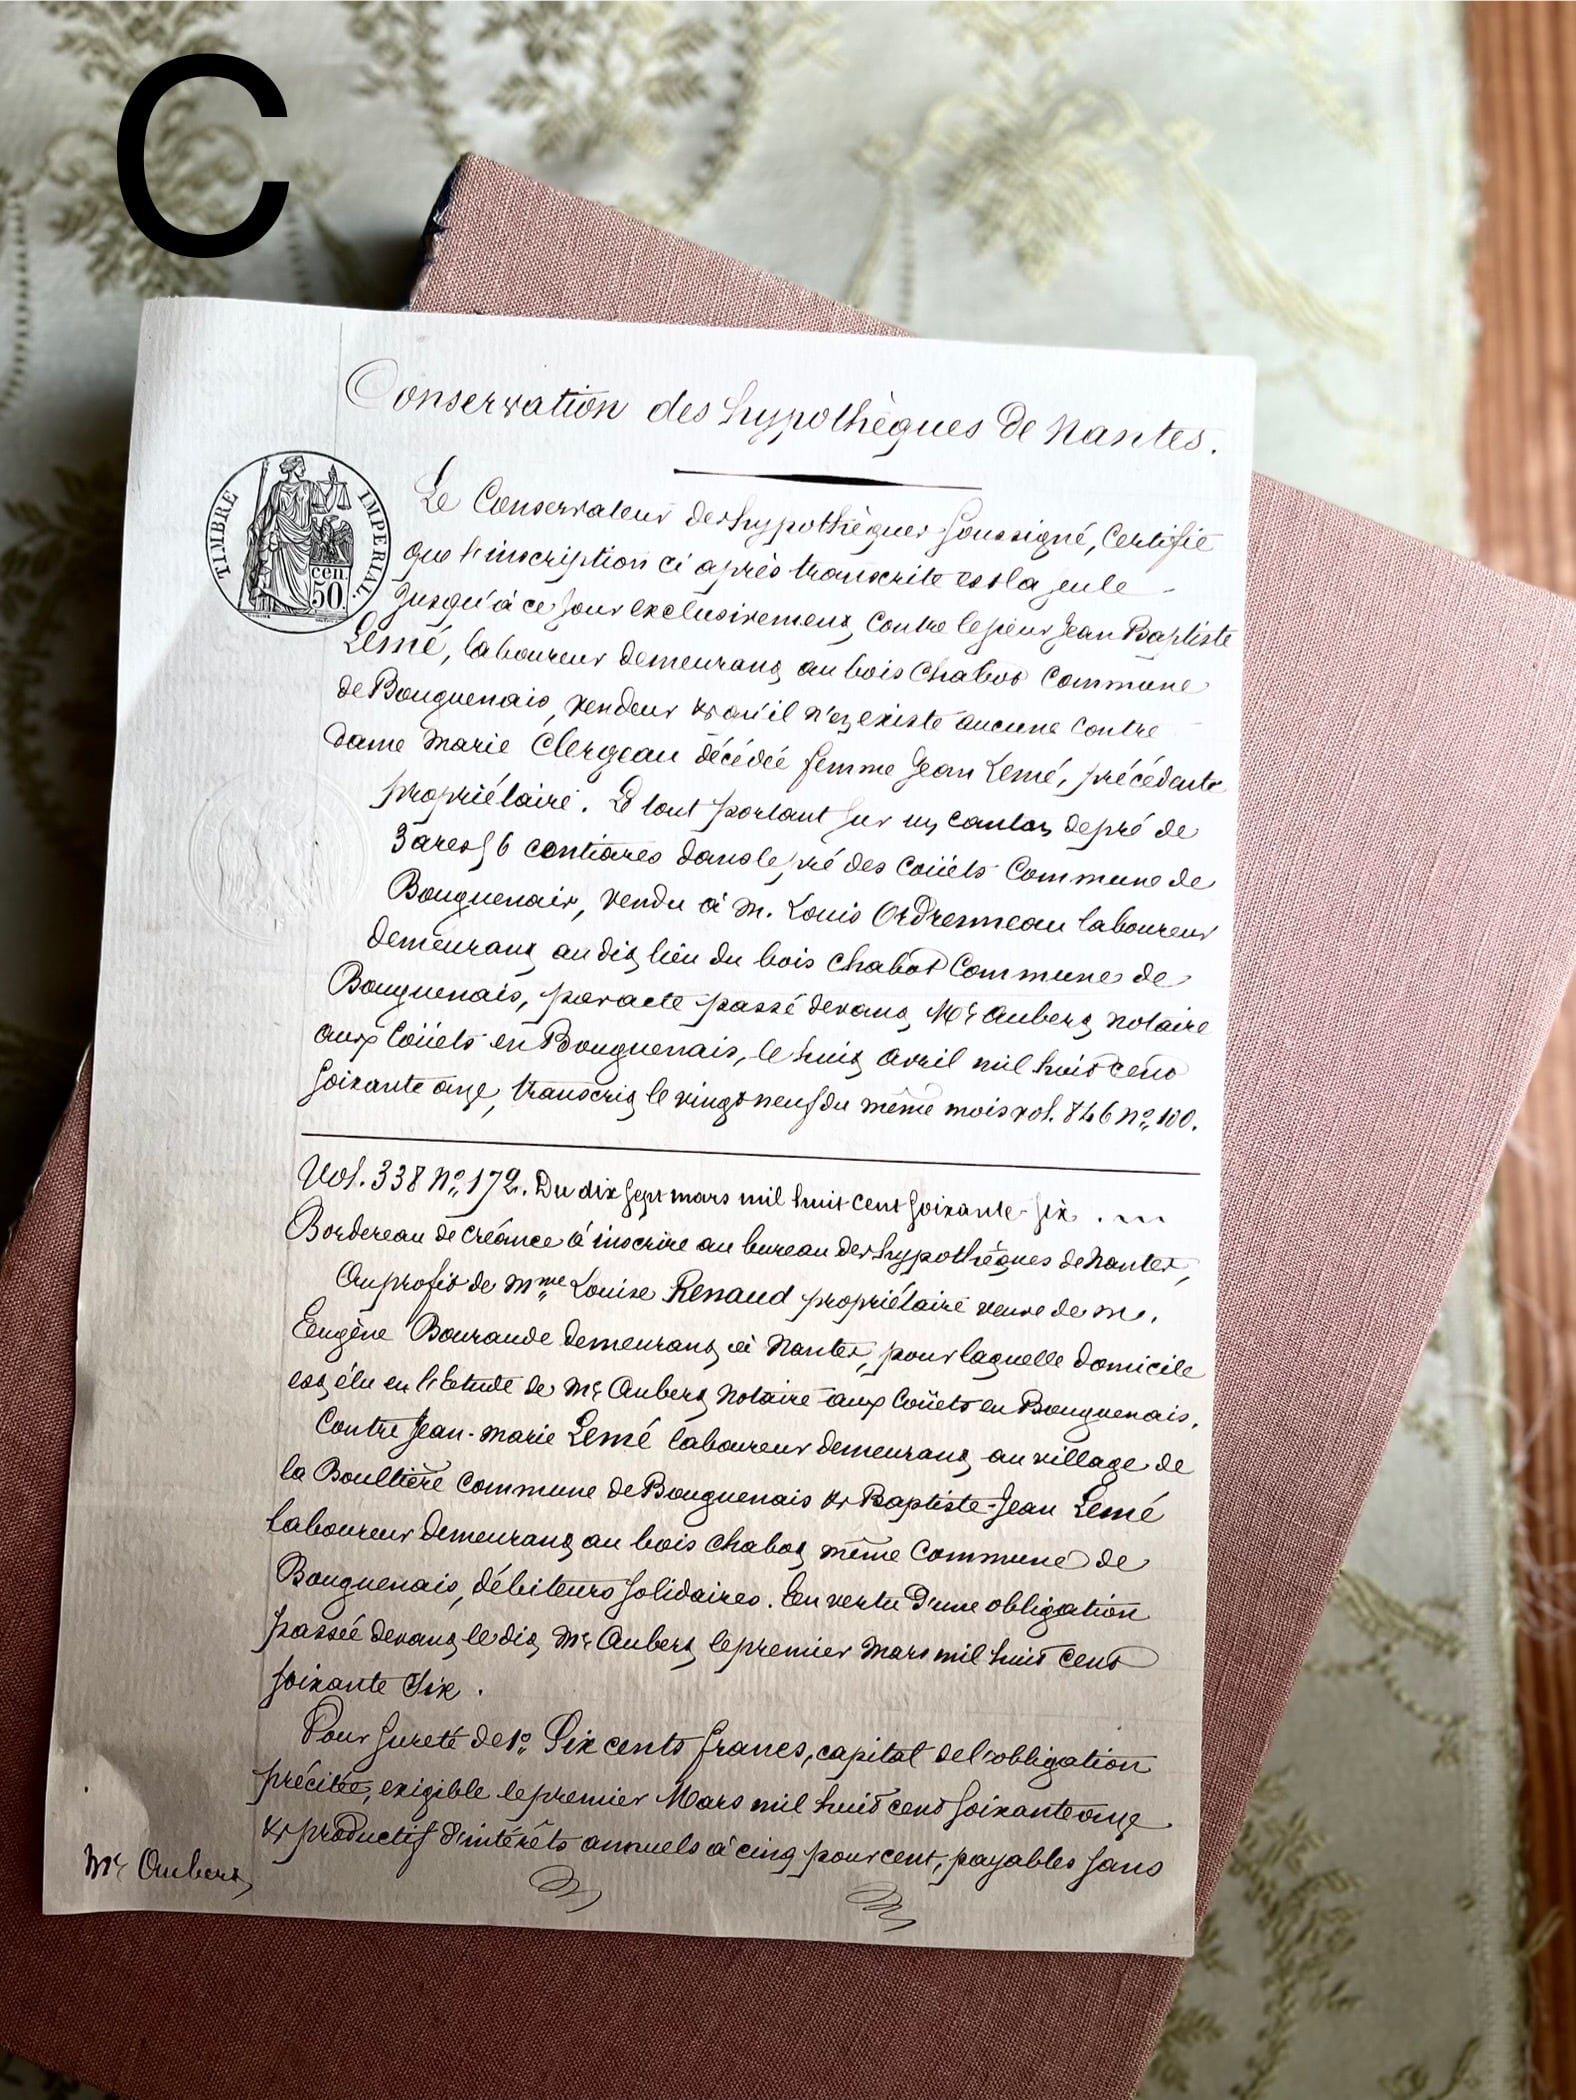 C
Conservation des hypothèques de Nantes.
TIMBRE IMPERIAL.
cen.
50.
Le Conservateur des hypothèques soussigné, Certifie
que l'inscription ci après transcrite est la seule
jusqu'à ce jour exclusivement, contre le sieur Jean Baptiste
Lemé, laboureur demeurant au bois Chabot Commune
de Bouguenais, vendeur & qu'il n'en existe aucune contre
dame Marie Clergeau décédée femme Jean Lemé, précédente
propriétaire. Le tout portant sur un canton de pré de
3 ares 56 centiares dans le pré des Coüëts Commune de
Bouguenais, vendu à M. Louis Ordrenneau laboureur
demeurant au dit lieu du bois Chabot Commune de
Bouguenais, par acte passé devant Me Aubert notaire
aux Coüëts en Bouguenais, le huit avril mil huit cent
soixante onze, transcrit le vingt neuf du même mois vol. 846 No 100.
Vol. 338 No 172. Du dix sept mars mil huit cent soixante-six.
Bordereau de créance à inscrire au bureau des hypothèques de Nantes,
Au profit de Mme Louise Renaud propriétaire veuve de M.
Eugène Bouraude demeurant à Nantes, pour laquelle domicile
est élu en l'Etude de Me Aubert notaire aux Coüëts en Bouguenais.
Contre Jean-Marie Lemé laboureur demeurant au village de
la Boultière Commune de Bouguenais & Baptiste-Jean Lemé
laboureur demeurant au bois Chabot même Commune de
Bouguenais, débiteurs solidaires. En vertu d'une obligation
passée devant le dit Me Aubert le premier mars mil huit cent
soixante six.
Pour sureté de 1o Six cents francs, capital de l'obligation
précitée, exigible le premier Mars mil huit cent soixante onze
& productif d'intérêts annuels à cinq pour cent, payables sans
Me Aubert